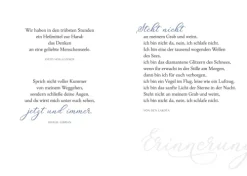 Wir haben in den trübsten Stunden
ein Heilmittel zur Hand:
das Denken
an eine geliebte Menschenseele.
Sprich nicht voller Kummer
von meinem Weggehen,
sondern schließe deine Augen,
und du wirst mich unter euch sehen,
jetzt und immer.
Steht nicht
an meinem Grab und weint,
ich bin nicht da, nein, ich schlafe nicht.
Ich bin eine der tausend wogenden Wellen
des Sees,
ich bin das diamantene Glitzern des Schnees,
wenn ihr erwacht in der Stille am Morgen,
dann bin ich für euch verborgen,
ich bin ein Vogel im Flug, leise wie ein Luftzug,
ich bin das sanfte Licht der Sterne in der Nacht.
Steht nicht an meinem Grab und weint,
ich bin nicht da, nein, ich schlafe nicht.
Erinnerung